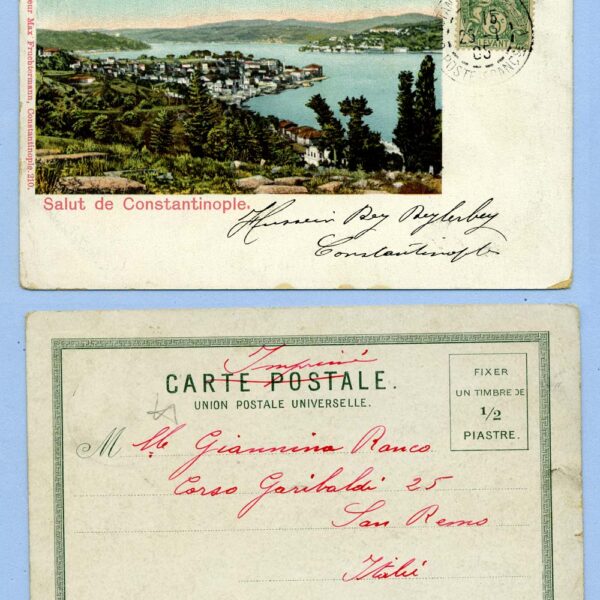 eur Max Fruchtermann, Constantinople. 210.
15
03
POSTE FRANÇ
Salut de Constantinople.
Hussein Bey Beylerbey
Constantinople
Imprimé
CARTE POSTALE.
UNION POSTALE UNIVERSELLE.
FIXER
UN TIMBRE DE
1/2
PIASTRE.
M lle Giannina Ranco
Corso Garibaldi 25
San Remo
Italie